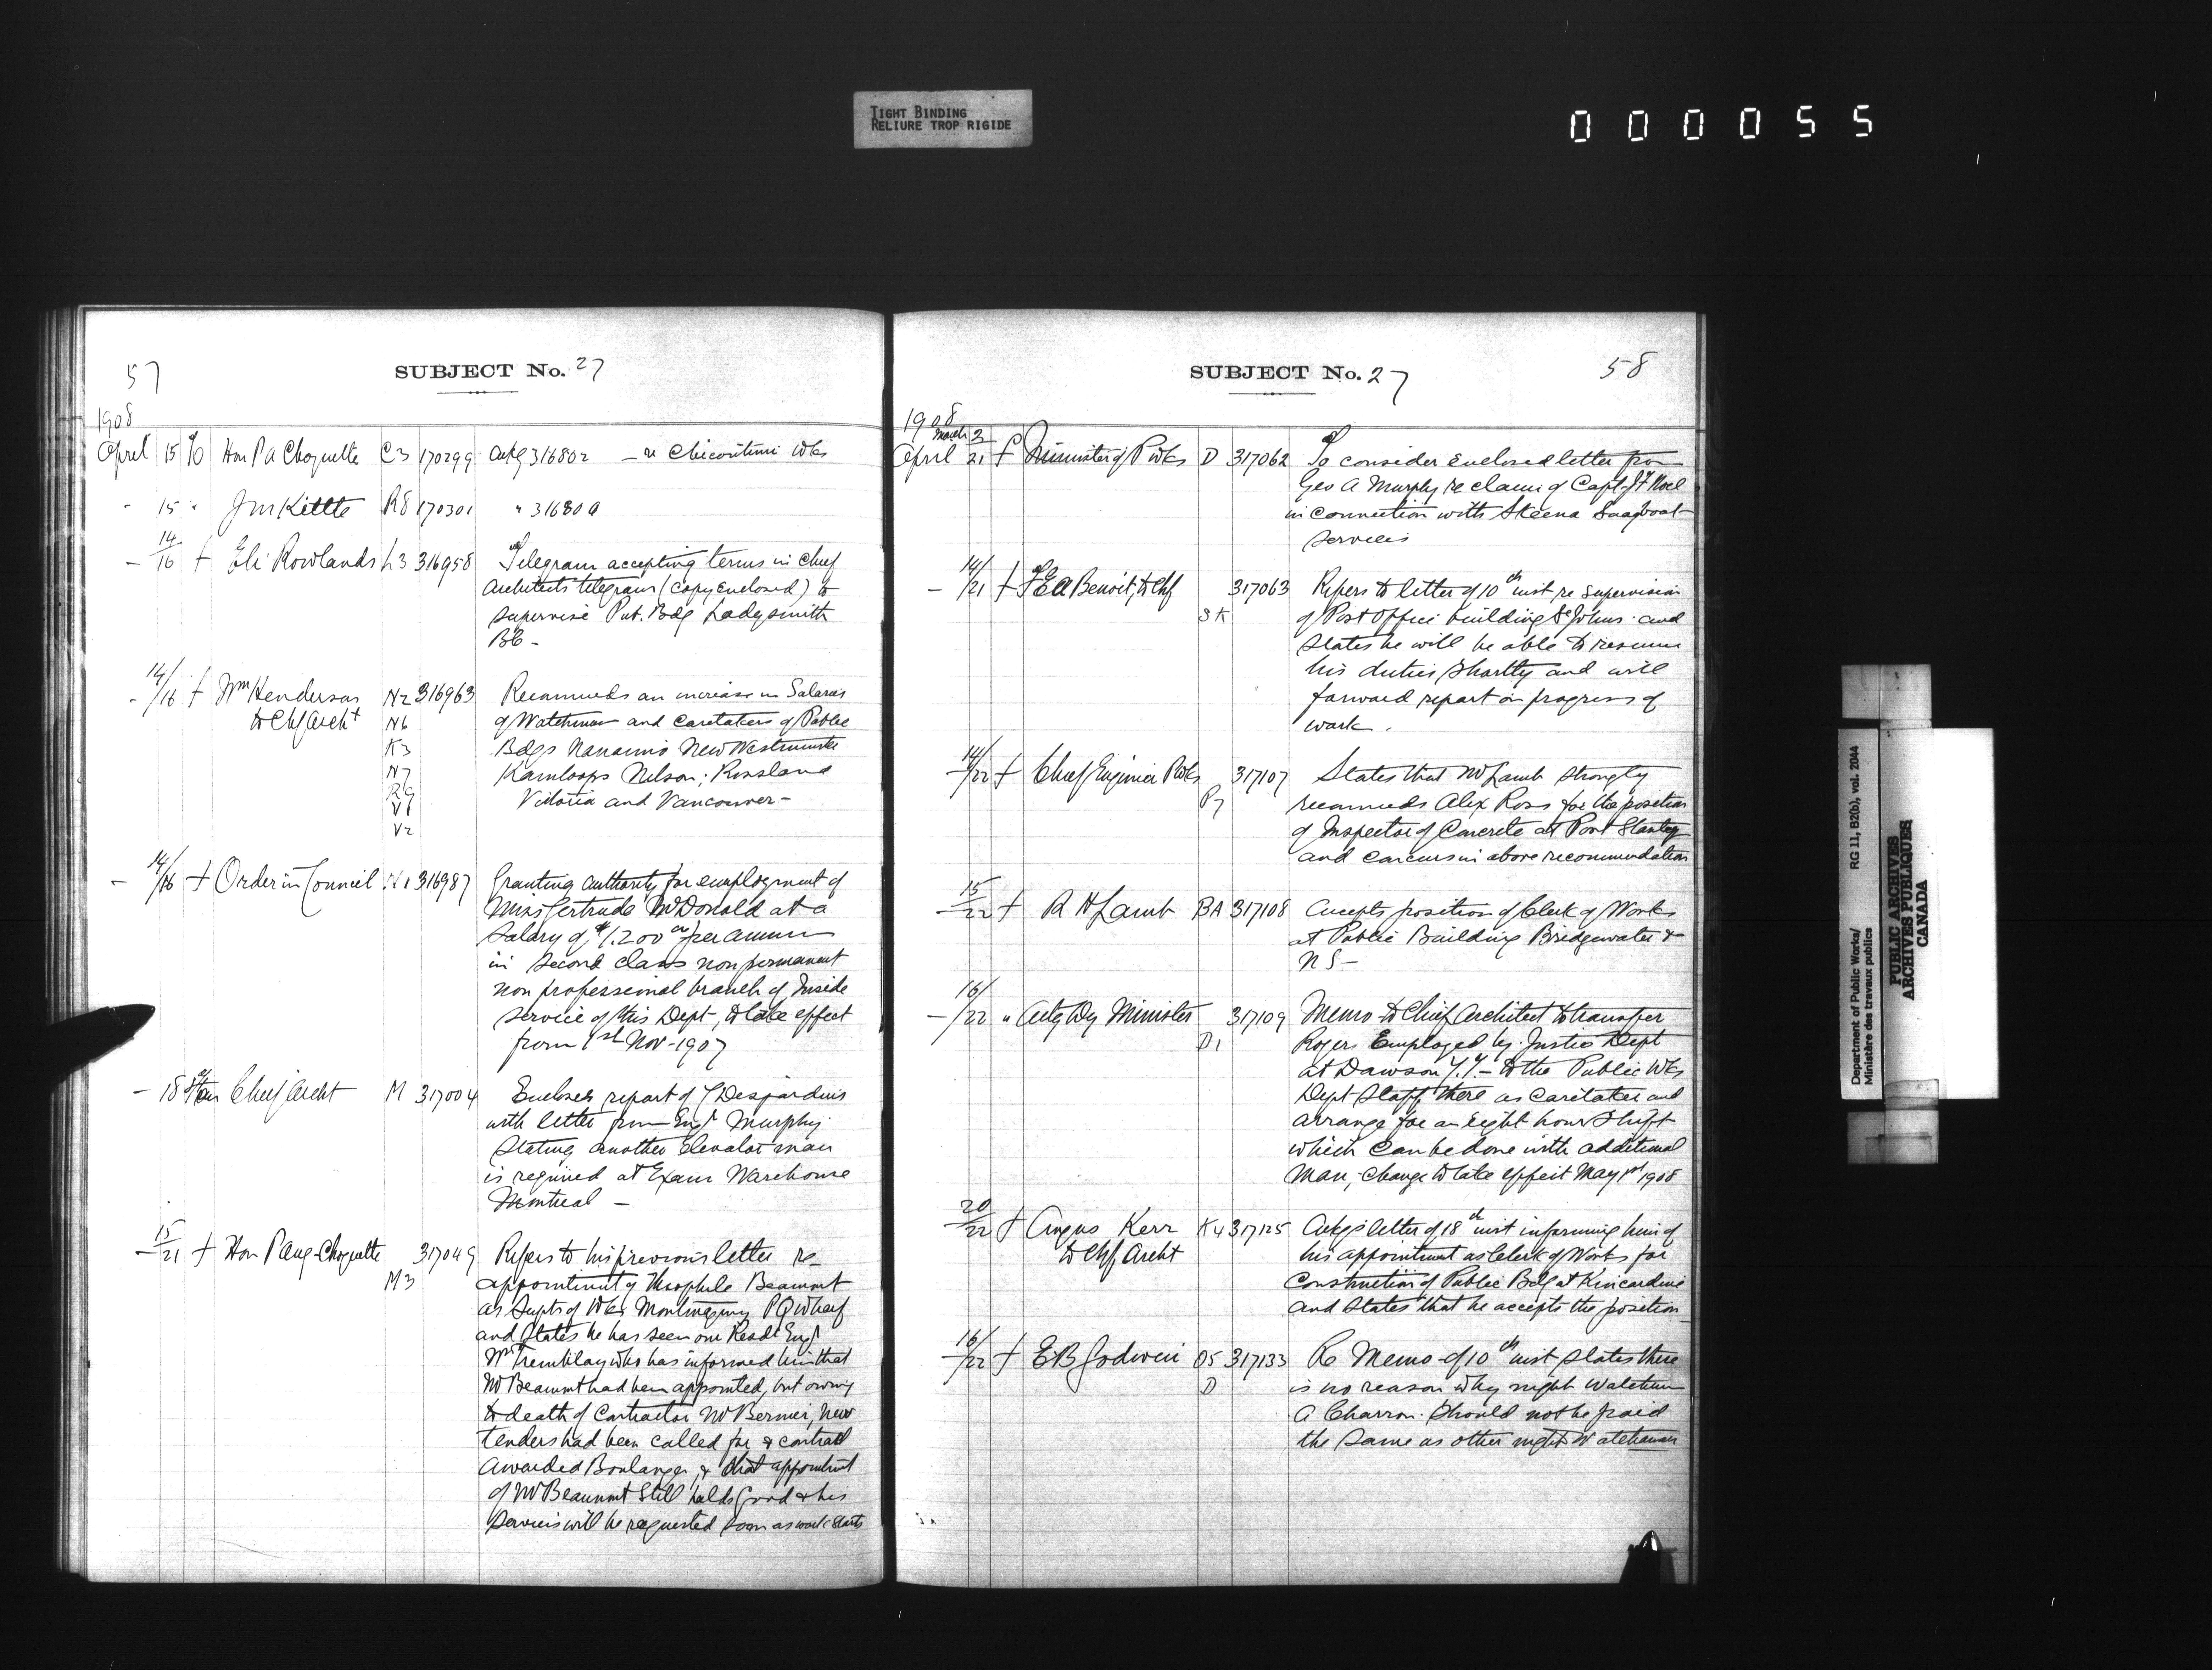 TIGHT BINDING
RELIURE TROP RIGIDE
000055
57
SUBJECT No. 27
1908
April 15 % Hon P A Choquette C3 170299 Ackg 316802 - re Chicoutimi Wks
" 15 " Jm Kittle R8 170301 " 31680
- 14/16 † Eli Rowlands L3 316958 Telegram accepting terms in Chief
Architects telegram (copy enclosed) to
supervise Pub. Bdg Ladysmith
BC -
- 14/16 † Wm Henderson N2 316963 Recommends an increase in Salaries
to Chf Archt N6 of Watchman and Caretakers of Public
K3 Bdgs Nanaimo New Westminster
N7 Kamloops Nelson; Rossland
R9 Victoria and Vancouver -
V1
V2
- 14/16 † Order in Council N1 316987 Granting authority for employment of
Miss Gertrude McDonald at a
Salary of $1.200 00 per annum
in Second class non permanent
non professional branch of Inside
Service of this Dept, to take effect
from 1st Nov - 1907
- 18 Chief Archt M 317004 Encloses report of Desjardins
with letter from Engr Murphy
Stating another Elevator man
is required at Exam Warehouse
Montreal -
- 15/21 † Hon P Aug - Choquette 317049 Refers to his previous letter re
M3 appointment of Theophile Beaumont
as Supt of Wks Montmagny PQ wharf
and States he has seen our Resdt Engr
Mr Tremblay who has informed him that
Mr Beaumont had been appointed, but owing
to death of Contractor Mr Bernier, New
tenders had been called for & contract
Awarded Boulanger, & that appointmt
of Mr Beaumont Still holds Good & his
Services will be requested soon as work Starts
SUBJECT No. 27
58
1908
March 3
April 21 † Minister of P Wks D 317062 To consider enclosed letter from
Geo A Murphy re claim of Capt J F Noel
in connection with Skeena Snagboat
Services
- 14/21 † F E A Benoit, to Chf 317063 Refers to letter of 10th inst re Supervision
SK of Post Office building St Johns and
States he will be able to resume
his duties shortly and will
forward report on progress of
work.
- 14/22 † Chief Engineer P Wks 317107 States that Mr Lamb strongly
P7 recommends Alex Ross for the position
of Inspector of Concrete at Port Stanley
and concurs in above recommendation
- 15/22 † R H Lamb BA 317108 Accepts position of Clerk of Works
at Public Building Bridgewater
N S -
- 16/22 " Actg Dy Minister 317109 Memo to Chief Architect to transfer
D1 Rogers Employed by Justice Dept
at Dawson Y.T. - to the Public Wks
Dept Staff there as Caretaker and
arrange for an eight hour Shift
which Can be done with additional
Man, Change to take effect May 1st 1908
20/22 † Angus Kerr K4 317125 Ackgs letter of 18th inst informing him of
to Chf Archt his appointment as Clerk of Works for
Construction of Public Bdg at Kincardine
and States that he accepts the position
- 16/22 † E B Godwin O5 317133 Re Memo of 10th inst States there
D is no reason why night Watchman
A Charron Should not be paid
the Same as other night Watchman
Department of Public Works/ RG 11, B2(b), vol. 2044
Ministère des travaux publics
PUBLIC ARCHIVES
ARCHIVES PUBLIQUES
CANADA